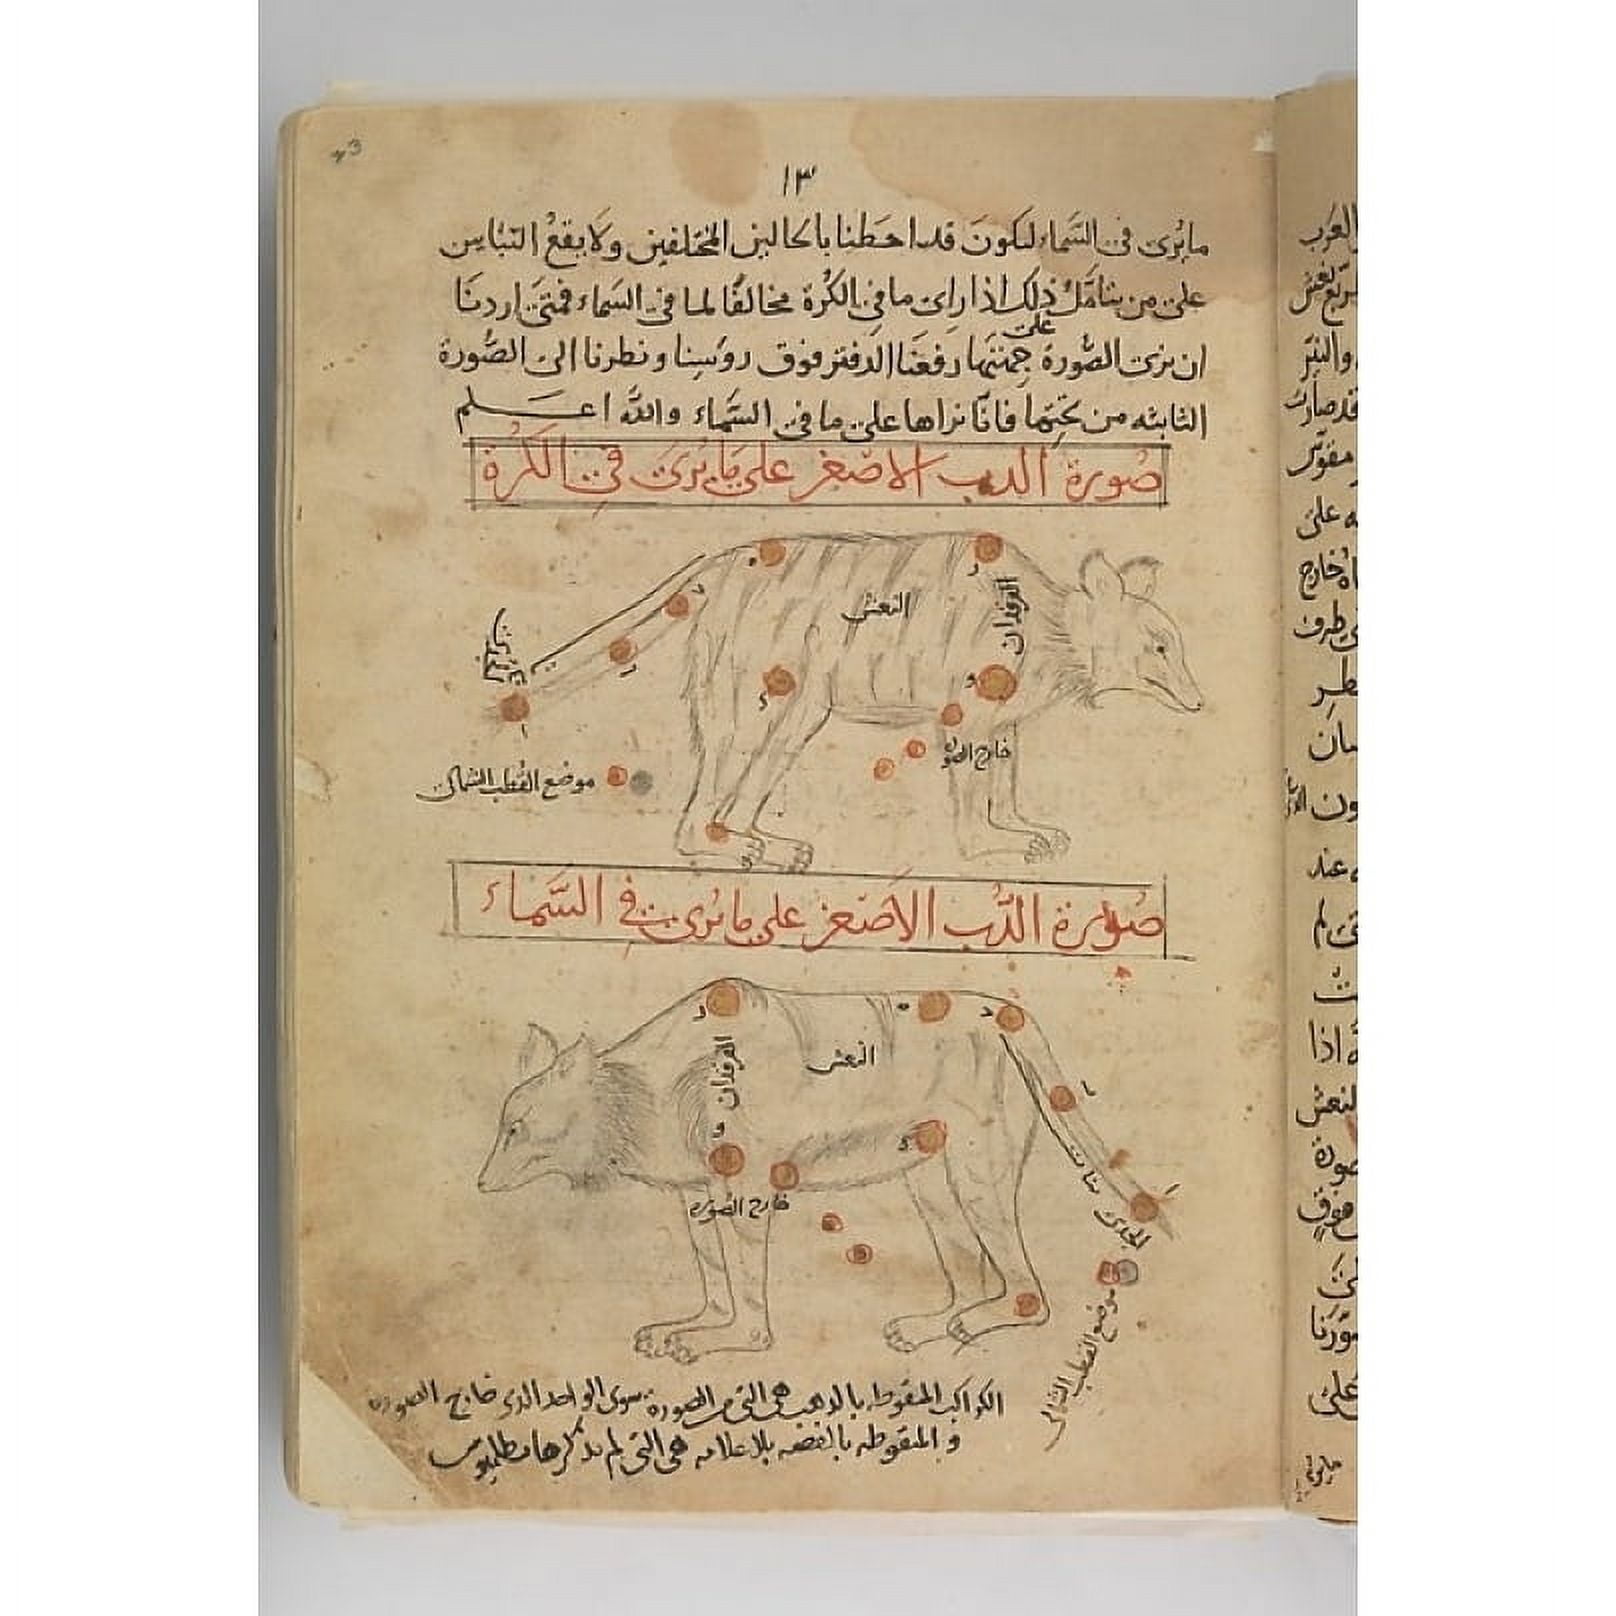 ١٣
ما يُرى فى السَّماء لنكونَ قد احَطنا بالحالين المختلفين ولا يقعُ التباين
على من يتامَّل ذلك اذا راى ما فى الكُرة مخالفًا لما فى السَماء فمتى اردنا
ان نرى الصُّورة على جهتها رفعنَا الدفتر فوق روسِنا ونظرنا الى الصُّورة
الثانيه من تحتِها فانّا نراها على ما فى السَّماء والله اعلم
صُورة الدب الاصغر على مَا يُرىَ فى الكُرة
د
ه
ز
الفرقدان
النعش
الجدى
و
ب
ا
خارج الصوره
موضع القطب الشمالى
صُورة الدُّب الأصغر على ما يُرى فى السَّماء
د
ه
الفرقدان
النعش
و
ب
بنات
خارج الصوره
الجدى
ا
موضع القطب الشمالى
الكواكب المنقوطه بالذهب هى التى من الصورة سوى الواحد الذى خارج الصوره
والمنقوطه بالفضه بلا علامه هى التى لم يذكرها بطلميوس
العرب
والنير
على
خارج
عند
اذا
النعش
صورة
فوق
على